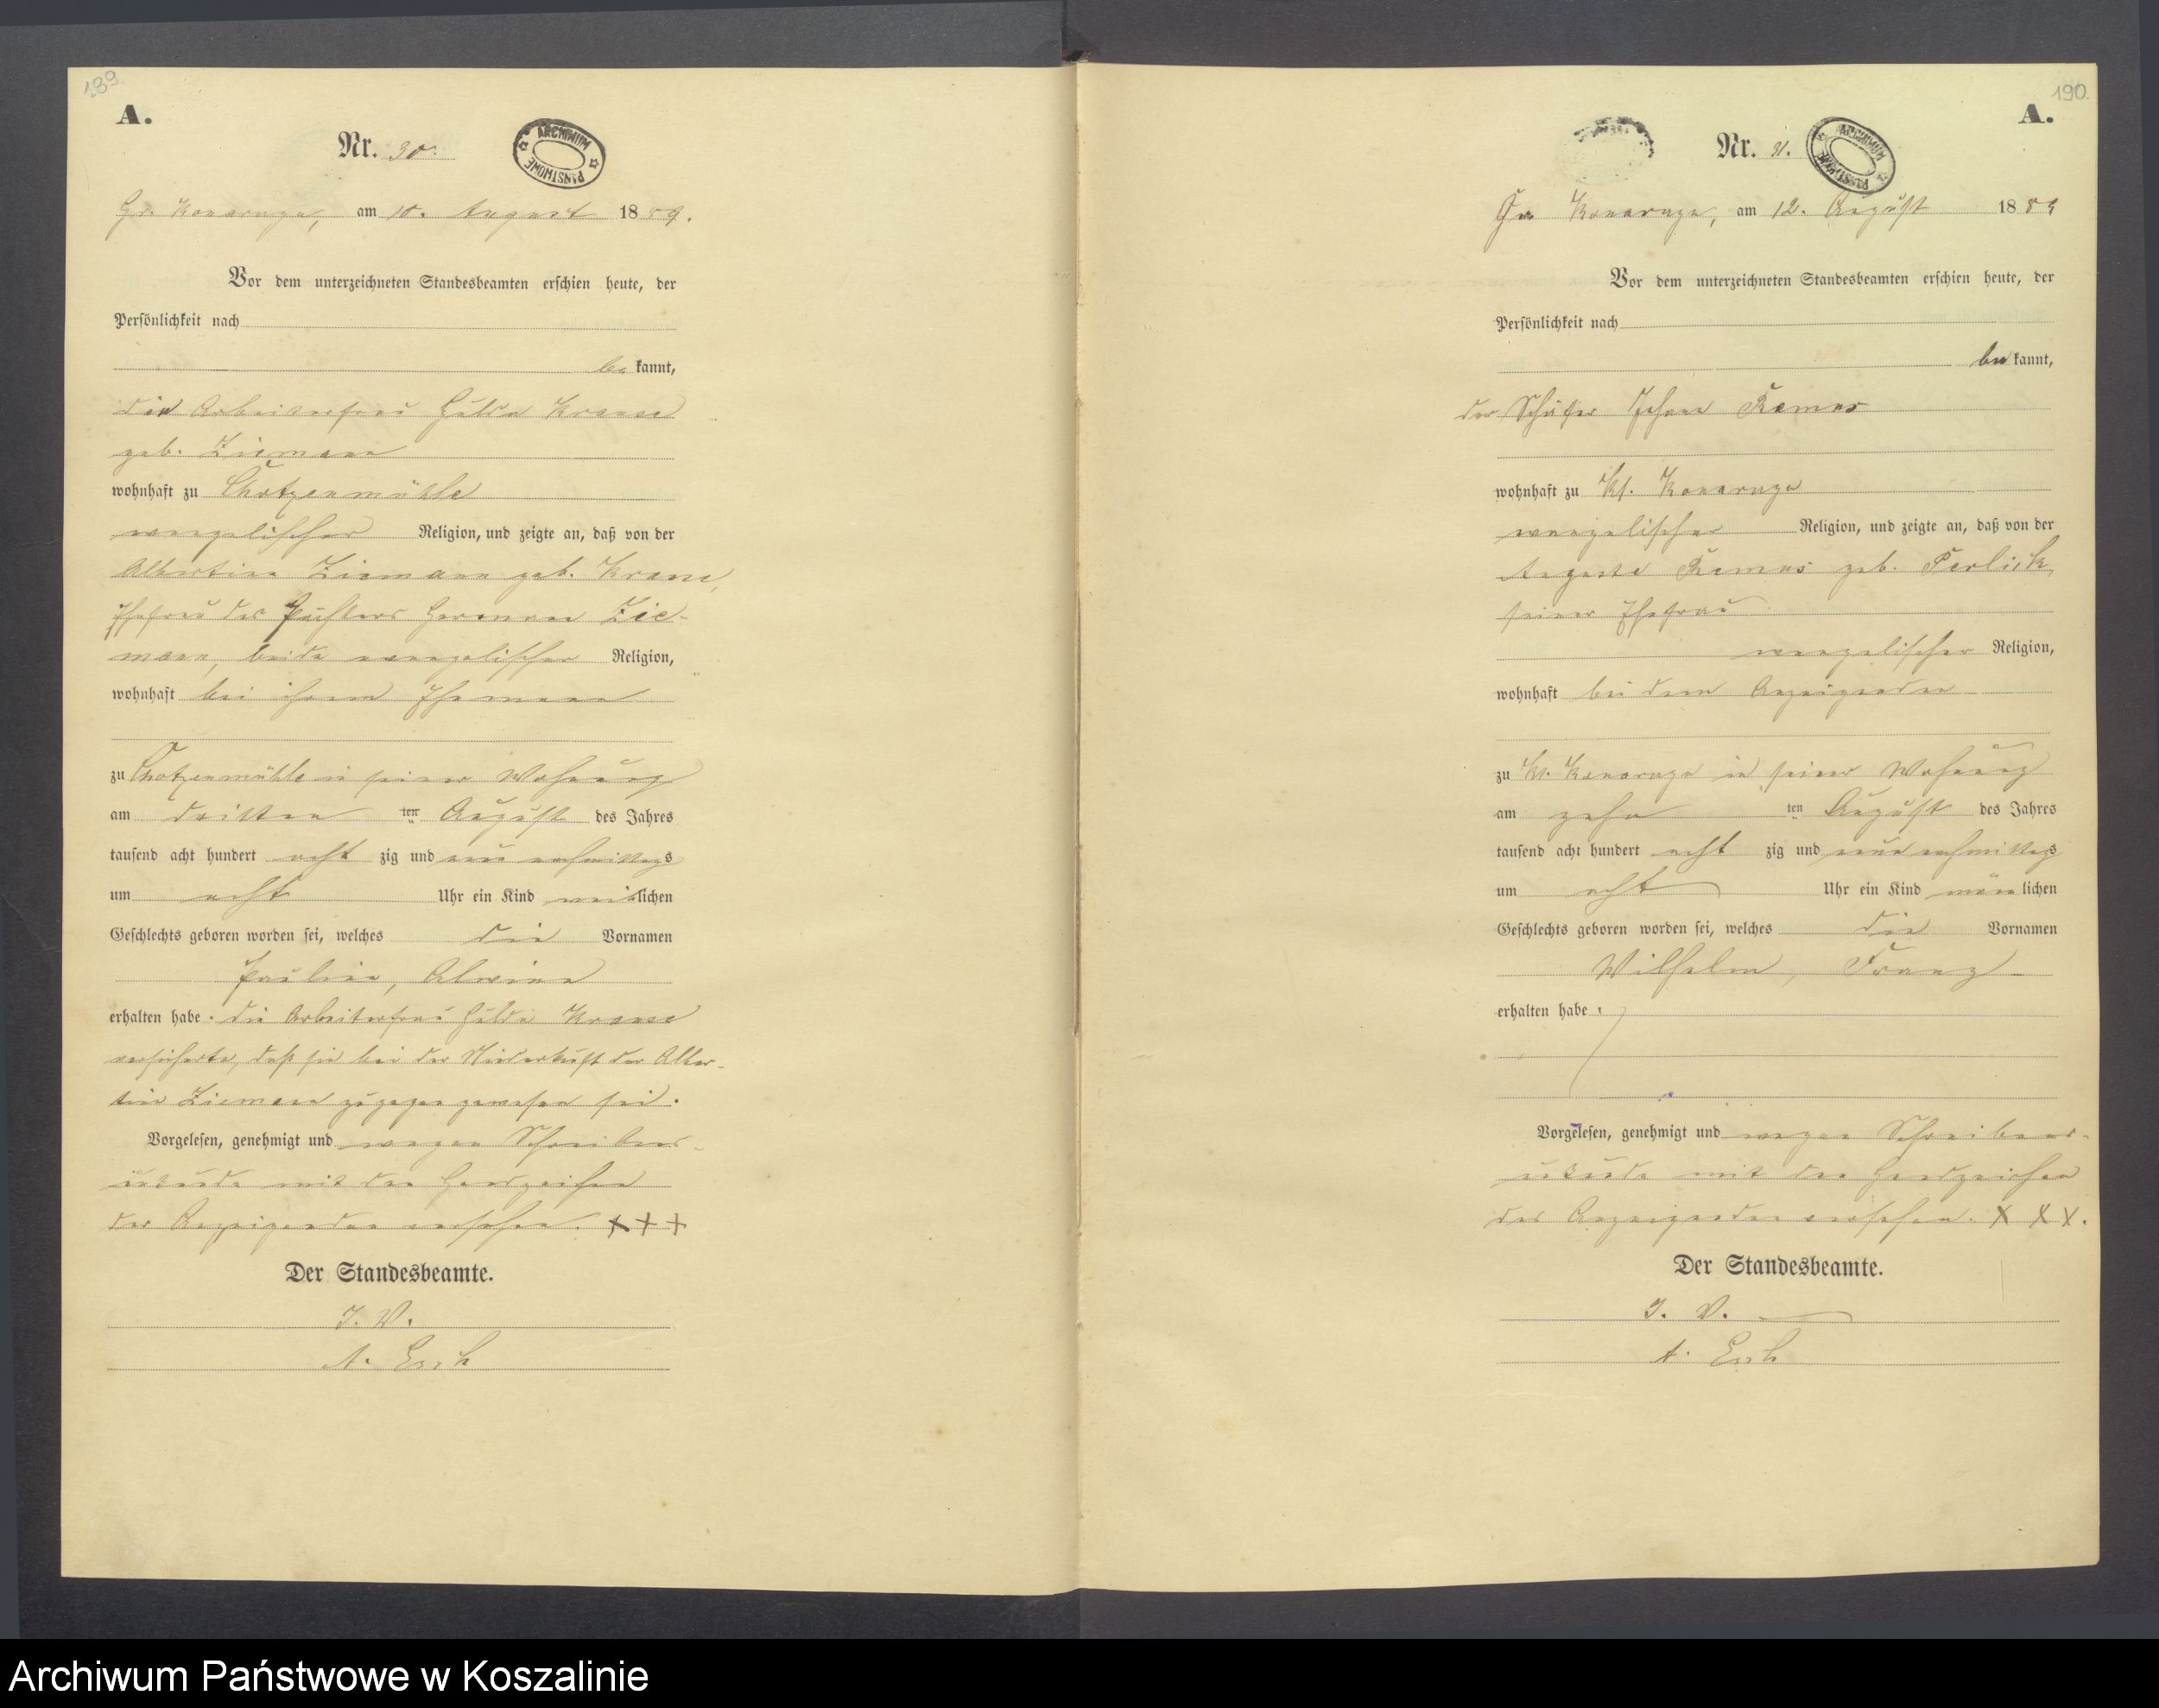 189.
A.
Nr. 30.
ARCHIWUM PAŃSTWOWE
Gr. Konarzyn, am 10. August 1889.
Vor dem unterzeichneten Standesbeamten erschien heute, der
Persönlichkeit nach
be kannt,
die Arbeiterfrau Hulda Krause
geb. Ziemann
wohnhaft zu Chotzenmühle
evangelischer Religion, und zeigte an, daß von der
Albertine Ziemann geb. Krause,
Ehefrau des Pächters Hermann Zie-
mann, beide evangelischer Religion,
wohnhaft bei ihrem Ehemann
zu Chotzenmühle in seiner Wohnung
am dritten ten August des Jahres
tausend acht hundert acht zig und neun nachmittags
um acht Uhr ein Kind weiblichen
Geschlechts geboren worden sei, welches die Vornamen
Pauline, Alwine
erhalten habe. Die Arbeiterfrau Hulda Krause
versicherte, daß sie bei der Niederkunft der Alber-
tine Ziemann zugegen gewesen sei.
Vorgelesen, genehmigt und wegen Schreibens-
unkunde mit den Handzeichen
der Anzeigenden versehen. +++
Der Standesbeamte.
I. V.
A. Esch
190.
A.
Nr. 31.
ARCHIWUM PAŃSTWOWE
Gr. Konarzyn, am 12. August 1889
Vor dem unterzeichneten Standesbeamten erschien heute, der
Persönlichkeit nach
be kannt,
der Schäfer Johann Remus
wohnhaft zu Kl. Konarzyn
evangelischer Religion, und zeigte an, daß von der
Auguste Remus geb. Perlick,
seiner Ehefrau
evangelischer Religion,
wohnhaft bei dem Anzeigenden
zu Kl. Konarzyn in seiner Wohnung
am zehn ten August des Jahres
tausend acht hundert acht zig und neun nachmittags
um acht Uhr ein Kind männlichen
Geschlechts geboren worden sei, welches die Vornamen
Wilhelm, Franz
erhalten habe.
Vorgelesen, genehmigt und wegen Schreibens-
unkunde mit den Handzeichen
des Anzeigenden versehen. X X X.
Der Standesbeamte.
I. V.
A. Esch
Archiwum Państwowe w Koszalinie